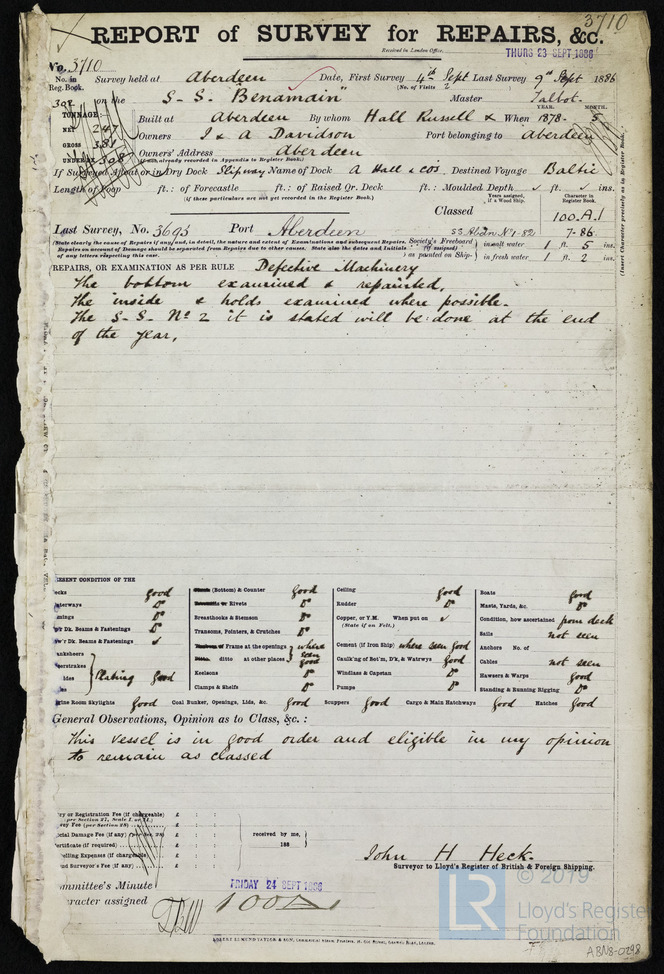 3710
REPORT of SURVEY for REPAIRS, &c.
Received in London Office,
THURS 23 SEPT 1886
No. 3710
No. in Reg. Book. Survey held at Aberdeen Date, First Survey 4th Sept Last Survey 9th Sept 1886
(No. of Visits 2
on the S-S- "Benamain" Master Talbot-
TONNAGE
NET 247
GROSS 381
UNDER DK 308
Built at Aberdeen By whom Hall Russell & When 1878- 5
YEAR. MONTH.
Owners J & A Davidson Port belonging to Aberdeen
Owners' Address Aberdeen
(if not already recorded in Appendix to Register Book.)
If Surveyed Afloat or in Dry Dock Slipway Name of Dock A Hall & Co's Destined Voyage Baltic
Length of Poop ft.: of Forecastle ft.: of Raised Qr. Deck ft.: Moulded Depth ft. ins.
(if these particulars are not yet recorded in the Register Book.)
Years assigned, if a Wood Ship.
Character in Register Book.
Classed 100.A.1
Last Survey, No. 3693 Port Aberdeen SS Abdn No 1-82 7-86
(State clearly the cause of Repairs if any; and, in detail, the nature and extent of Examinations and subsequent Repairs.
Repairs on account of Damage should be separated from Repairs due to other causes. State also the dates and Initials of any letters respecting this case.
Society's Freeboard (if assigned) as painted on Ship- in salt water 1 ft. 5 ins.
in fresh water 1 ft. 2 ins.
(Insert Character precisely as in Register Book.)
REPAIRS, OR EXAMINATION AS PER RULE Defective Machinery
The bottom examined & repainted,
The inside & holds examined where possible-
The S-S- No 2 it is stated will be done at the end
of the year.
RESENT CONDITION OF THE
ecks good
aterways Do
mings Do
er Dk. Beams & Fastenings Do
w'r Dk. Beams & Fastenings
anksheers
eerstrakes
ides
Plating good
(Bottom) & Counter good
or Rivets Do
Breasthooks & Stemson Do
Transoms, Pointers, & Crutches Do
Frame at the openings where seen
ditto at other places good
Keelsons Do
Clamps & Shelfs Do
Ceiling good
Rudder Do
Copper, or Y.M. When put on
(State if on Felt.)
Cement (if Iron Ship) where seen good
Caulk'ng of Bot'm, D'k, & Watrwys good
Windlass & Capstan Do
Pumps Do
Boats good
Masts, Yards, &c. Do
Condition, how ascertained from deck
Sails not seen
Anchors No. of
Cables not seen
Hawsers & Warps good
Standing & Running Rigging Do
gine Room Skylights good Coal Bunker, Openings, Lids, &c. good Scuppers good Cargo & Main Hatchways good Hatches good
General Observations, Opinion as to Class, &c.:
This vessel is in good order and eligible in my opinion
to remain as classed
ry or Registration Fee (if chargeable) £ : :
(per Section 27, Scale
vey Fee (per Section 28) £ : :
cial Damage Fee (if any) (per Sec. 28) £ : :
ertificate (if required) £ : :
velling Expenses (if chargeable) £ : :
nd Surveyor's Fee (if any) £ : :
received by me,
188
John H Heck.
Surveyor to Lloyd's Register of British & Foreign Shipping.
ommittee's Minute FRIDAY 24 SEPT 1886
aracter assigned 100A1
© 2019
LR
Lloyd's Register
Foundation
ABN8-0298